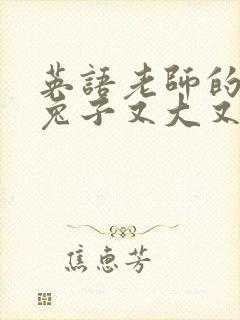 英語老師的
兔子又大又
焦惠芳